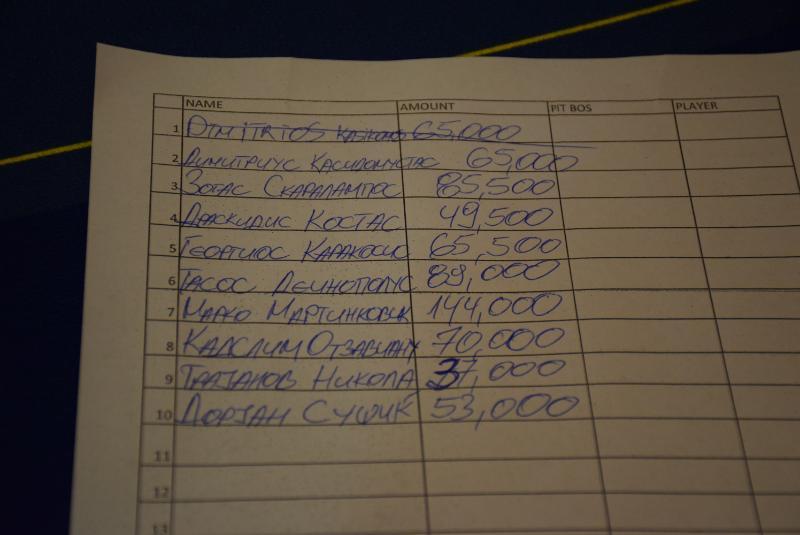 NAME AMOUNT PIT BOS PLAYER
1 DIMITRIOS 65,000
2 ДИМИТРИУС КАСИДОМУСТАС 65,000
3 ЗОТАС СКАРАЛАМПОС 85,500
4 ДРАСКИДИС КОСТАС 49,500
5 ГЕОРГИОС КАРАКОСИС 65,500
6 ТАСОС ДЕИНОПОЛУС 89,000
7 МАРКО МАРТИНКОВИК 144,000
8 КАДСЛИМ ОТЗАВИАНУ 70,000
9 ТРАЈАНОВ НИКОЛА 37,000
10 ДОРЈАН СУФИК 53,000
11
12
13